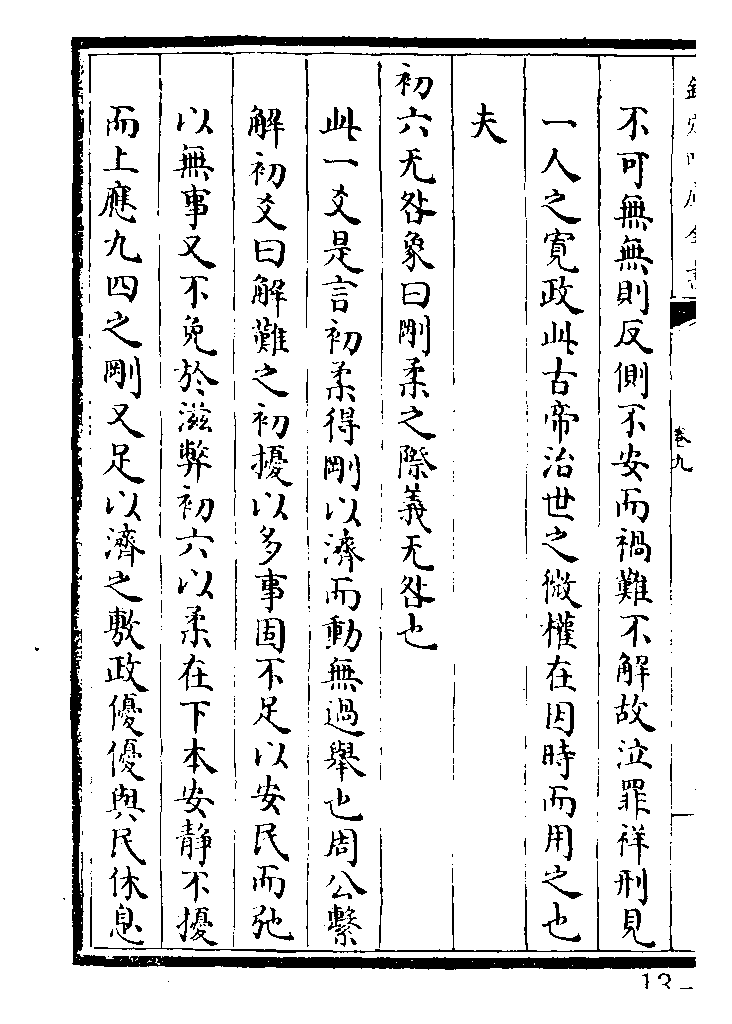 欽定四庫全書
卷九
不可無無則反側不安而禍難不解故泣罪祥刑見
一人之寛政此古帝治世之微權在因時而用之也
夫
初六无咎象曰剛柔之際義无咎也
此一爻是言初柔得剛以濟而動無過舉也周公繫
解初爻曰解難之初擾以多事固不足以安民而弛
以無事又不免於滋弊初六以柔在下本安静不擾
而上應九四之剛又足以濟之敷政優優與民休息
13